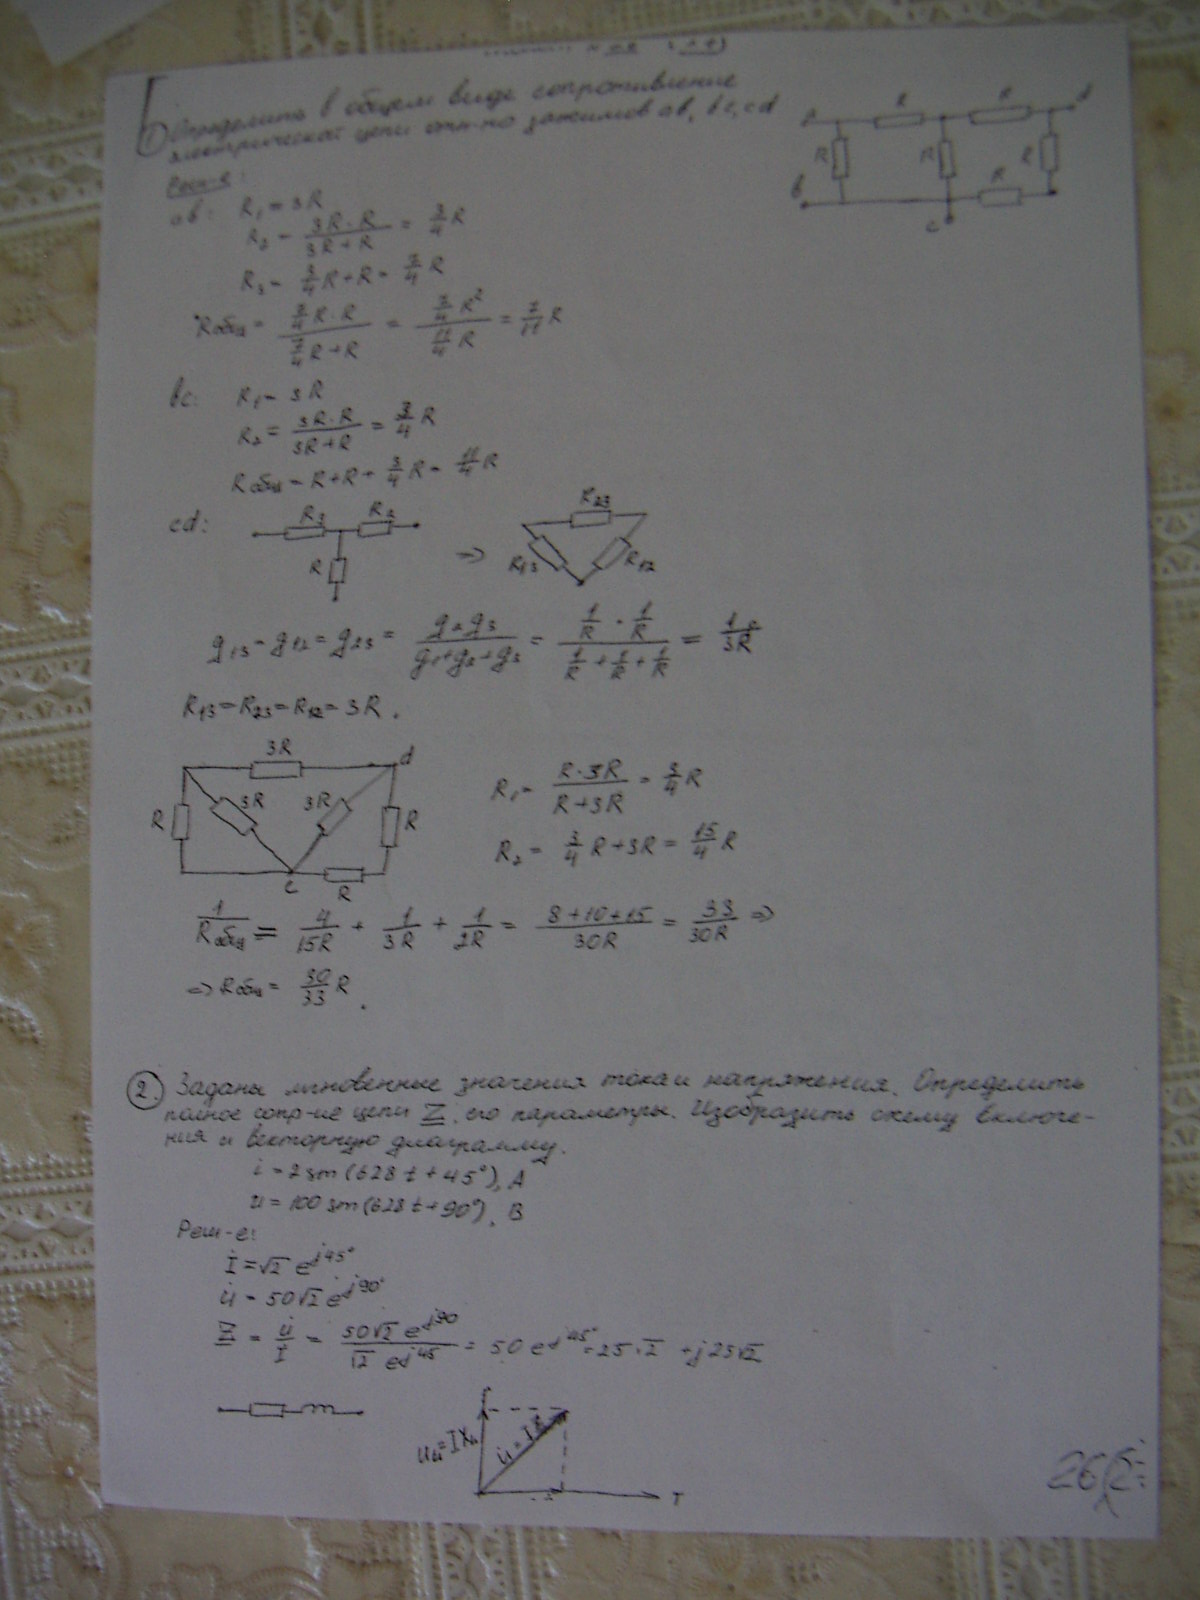 1 Определить в общем виде сопротивление
электрической цепи отн-но зажимов ab, bc, cd
a R R d
R R R
b R
c
Реш-е:
ab: R₁ = 3R
R₂ = 3R·R / 3R+R = 3/4 R
R₃ = 3/4 R + R = 7/4 R
Rобщ = 7/4 R·R / 7/4 R+R = 7/4 R² / 11/4 R = 7/11 R
bc: R₁ = 3R
R₂ = 3R·R / 3R+R = 3/4 R
Rобщ = R + R + 3/4 R = 11/4 R
cd: R₃ R₂ R ⇒ R₂₃ R₁₃ R₁₂
g₁₃ = g₁₂ = g₂₃ = g₂g₃ / g₁+g₂+g₃ = 1/R · 1/R / 1/R + 1/R + 1/R = 1/3R
R₁₃ = R₂₃ = R₁₂ = 3R.
3R d
R 3R 3R R
c R
R₁ = R·3R / R+3R = 3/4 R
R₂ = 3/4 R + 3R = 15/4 R
1/Rобщ = 4/15R + 1/3R + 1/2R = 8+10+15 / 30R = 33/30R ⇒
⇒ Rобщ = 30/33 R.
2. Заданы мгновенные значения тока и напряжения. Определить
полное сопр-ие цепи Z, его параметры. Изобразить схему включе-
ния и векторную диаграмму.
i = 2 sin (628 t + 45°), A
u = 100 sin (628 t + 90°), В
Реш-е:
İ = √2 e^j45°
U̇ = 50√2 e^j90°
Z = U̇/İ = 50√2 e^j90 / √2 e^j45 = 50 e^j45° = 25·√2 + j25√2